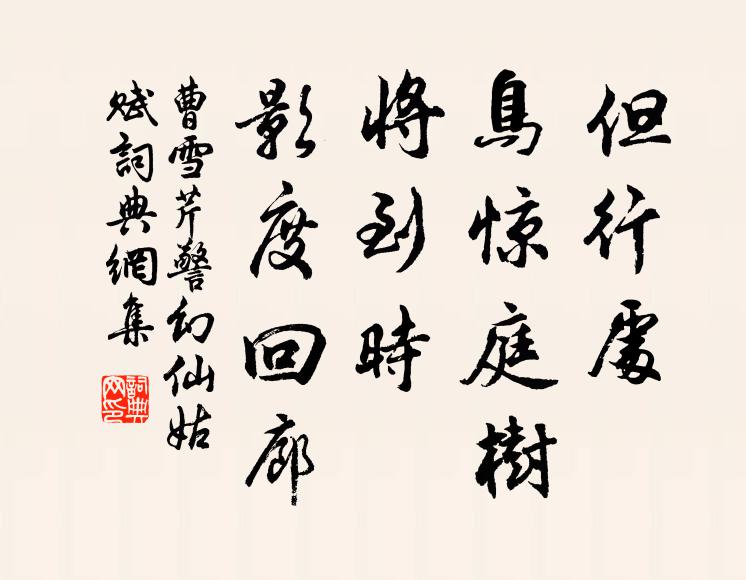 但行處
鳥惊庭樹
將到時
影度回廊
曹雪芹警幻仙姑
賦詞典網集
詞典
网印